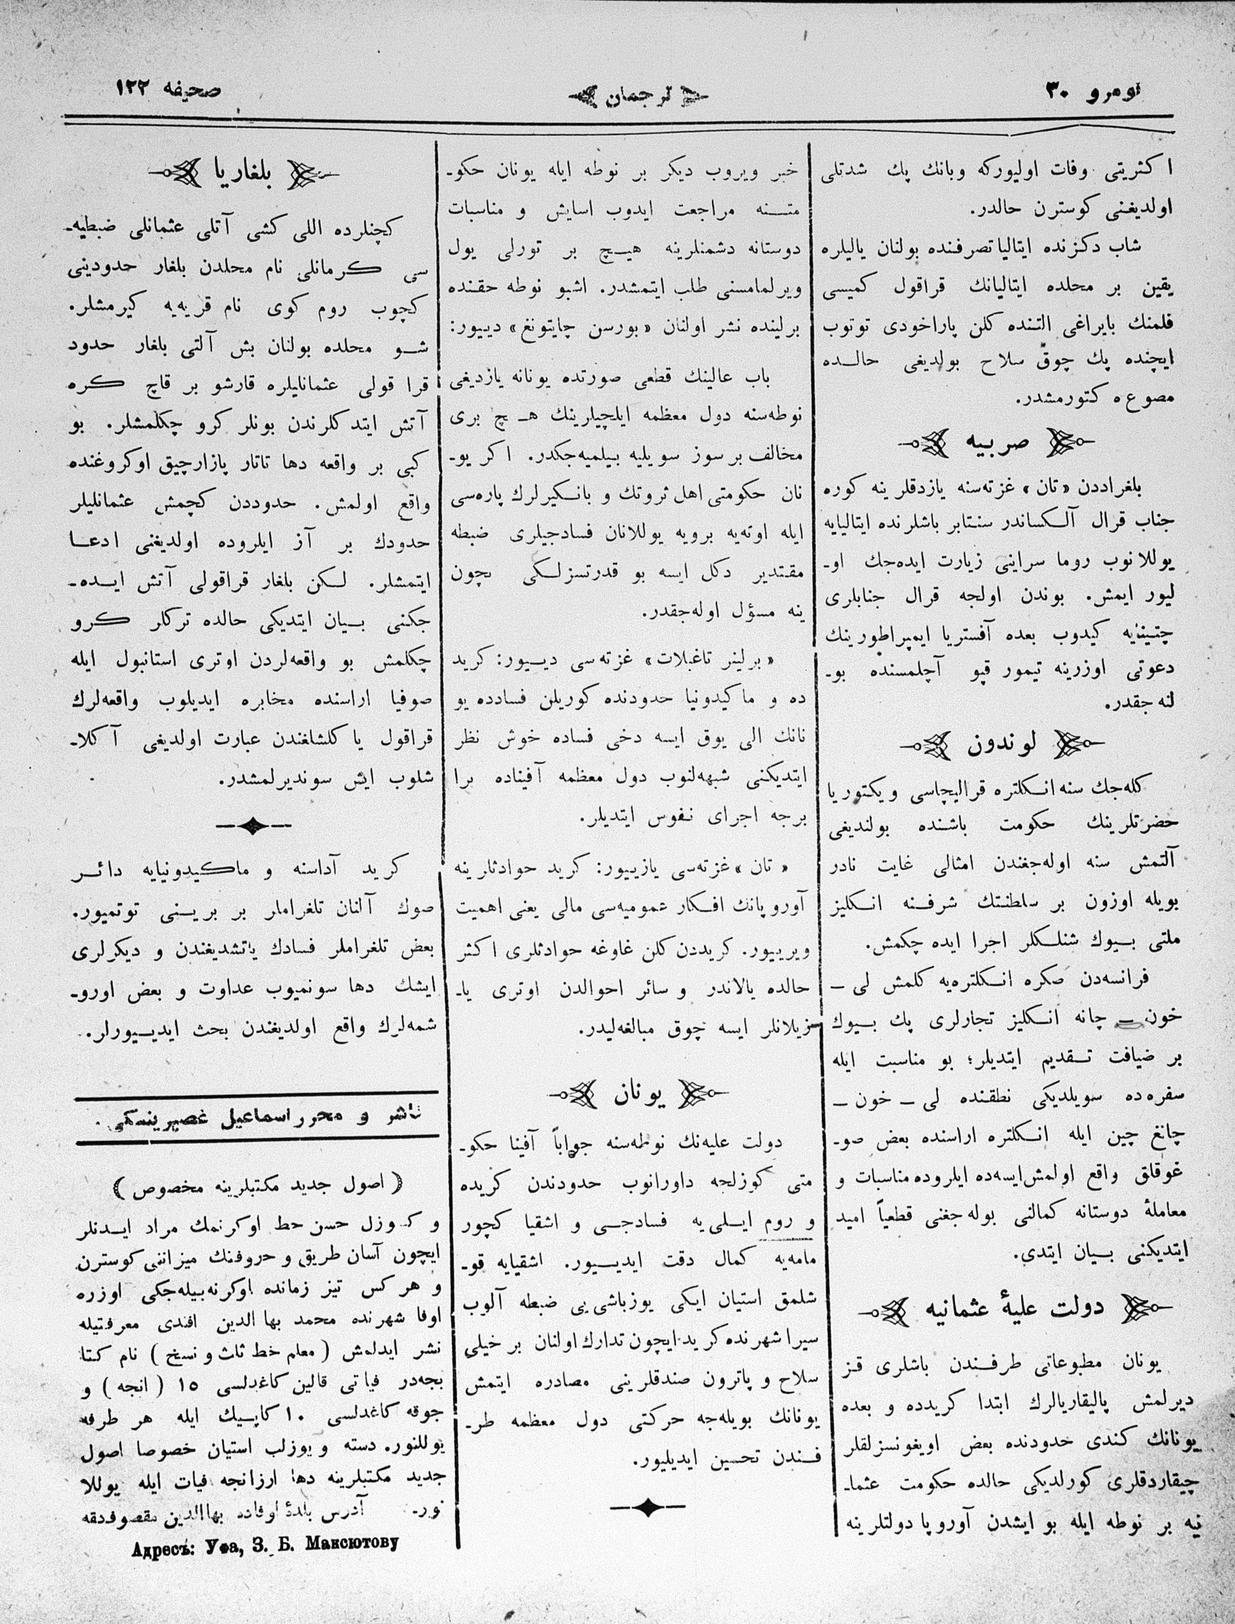 نومرو ٣٠
ترجمان
صحیفه ١٢٢
اكثریتی وفات اولیوركه وبانك پك شدتلی
اولدیغنی كوسترن حالدر.
شاب دكزنده ایتالیا تصرفنده بولنان یالیلره
یقین بر محلده ایتالیانك قراقول كمیسی
فلمنك بایراغی التنده كلن پاراخودی توتوب
ایچنده پك چوق سلاح بولدیغی حالده
مصوع ه كتورمشدر.
صربیه
بلغراددن «تان» غزته‌سنه یازدقلرینه كوره
جناب قرال آلكساندر سنتابر باشلرنده ایتالیایه
یوللانوب روما سراینی زیارت ایده‌جك او-
لیور ایمش. بوندن اولجه قرال جنابلری
چتینیایه كیدوب بعده آفستریا ایمپراطورینك
دعوتی اوزرینه تیمور قپو آچلمسنده بو-
لنه جقدر.
لوندون
كله‌جك سنه انكلتره قرالیچاسی ویكتوریا
حضرتلرینك حكومت باشنده بولندیغی
آلتمش سنه اوله‌جغندن امثالی غایت نادر
بویله اوزون بر سلطنتك شرفنه انكلیز
ملتی بیوك شنلكلر اجرا ایده چكمش.
فرانسه‌دن صكره انكلتره‌یه كلمش لی –
خون – چانه انكلیز تجارلری پك بیوك
بر ضیافت تقدیم ایتدیلر؛ بو مناسبت ایله
سفره‌ده سویلدیكی نطقنده لی – خون –
چانغ چین ایله انكلتره اراسنده بعض صو-
غوقلق واقع اولمش‌ایسه‌ده ایلروده مناسبات و
معاملهٔ دوستانه كمالنی بوله جغنی قطعیاً امید
ایتدیكنی بیان ایتدی.
دولت علیهٔ عثمانیه
یونان مطبوعاتی طرفندن باشلری قز
دیرلمش پالیقاریالرك ابتدا كریدده و بعده
یونانك كندی حدودنده بعض اویغونسزلقلر
چیقاردقلری كورلدیكی حالده حكومت عثما-
نیه بر نوطه ایله بو ایشدن آوروپا دولتلرینه
خبر ویروب دیكر بر نوطه ایله یونان حكو-
متنه مراجعت ایدوب اسایش و مناسبات
دوستانه دشمنلرینه هیچ بر تورلی یول
ویرلمامسنی طلب ایتمشدر. اشبو نوطه حقنده
برلینده نشر اولنان «بورسن چایتونغ» دییور:
باب عالینك قطعی صورتده یونانه یازدیغی
نوطه‌سنه دول معظمه ایلچیلرینك هیچ بری
مخالف بر سوز سویلیه بیلمیه‌جكدر. اكر یو-
نان حكومتی اهل ثروتك و بانكیرلرك پاره‌سی
ایله اوته‌یه برویه یوللانان فسادجیلری ضبطه
مقتدیر دكل ایسه بو قدرتسزلكی ایچون
ینه مسؤل اوله‌جقدر.
«برلینر تاغبلات» غزته‌سی دییور: كرید
ده و ماكیدونیا حدودنده كوریلن فسادده یو
نانك الی یوق ایسه دخی فساده خوش نظر
ایتدیكنی شبهه‌لنوب دول معظمه آفیناده برا
برجه اجرای نفوس ایتدیلر.
«تان» غزته‌سی یازییور: كرید حوادثارینه
آوروپانك افكار عمومیه‌سی مالی یعنی اهمیت
ویرییور. كریددن كلن غاوغه حوادثلری اكثر
حالده یالاندر و سائر احوالدن اوتری یا-
زیلانلر ایسه چوق مبالغه‌لیدر.
یونان
دولت علیه‌نك نوطه‌سنه جواباً آفینا حكو-
متی كوزلجه داورانوب حدودندن كریده
و روم ایلی‌یه فسادجی و اشقیا كچور
مامه‌یه كمال دقت ایدییور. اشقیایه قو-
شلمق استیان ایكی یوزباشی‌یی ضبطه آلوب
سیرا شهرنده كرید ایچون تدارك اولنان بر خیلی
سلاح و پاترون صندقلرینی مصادره ایتمش
یونانك بویله‌جه حركتی دول معظمه طر-
فندن تحسین ایدیلیور.
بلغاریا
كچنلرده اللی كشی آتلی عثمانلی ضبطیه-
سی كرمانلی نام محلدن بلغار حدودینی
كچوب روم كوی نام قریه‌یه كیرمشلر.
شو محلده بولنان بش آلتی بلغار حدود
قرا قولی عثمانلیلره قارشو بر قاچ كره
آتش ایتدكلرندن بونلر كرو چكلمشلر. بو
كبی بر واقعه دها تاتار پازارچیق اوكروغنده
واقع اولمش. حدوددن كچمش عثمانلیلر
حدودك بر آز ایلروده اولدیغنی ادعا
ایتمشلر. لكن بلغار قراقولی آتش ایده-
جكنی بیان ایتدیكی حالده تركلر كرو
چكلمش بو واقعه‌لردن اوتری استانبول ایله
صوفیا اراسنده مخابره ایدیلوب واقعه‌لرك
قراقول یاكلشلغندن عبارت اولدیغی آكلا-
شلوب ایش سوندیرلمشدر.
كرید آداسنه و ماكیدونیایه دائر
صوك آلنان تلغراملر بر برینی توتمیور.
بعض تلغراملر فسادك یاتشدیغندن و دیكرلری
ایشك دها سونمیوب عداوت و بعض اورو-
شمه‌لرك واقع اولدیغندن بحث ایدییورلر.
ناشر و محرر اسماعیل غصپرینسكی.
(اصول جدید مكتبلرینه مخصوص)
و كوزل حسن خط اوكرنمك مراد ایدنلر
ایچون آسان طریق و حروفنك میزانی كوسترن
و هر كس تیز زمانده اوكرنه‌بیله‌جكی اوزره
اوفا شهرنده محمد بها الدین افندی معرفتیله
نشر ایدلمش (معلم خط ثلث و نسخ) نام كتا
بجه‌در فیاتی قالین كاغدلسی ١٥ (انجه) و
جوقه كاغدلسی ١٠ كاپیك ایله هر طرفه
یوللنور. دسته و یوزلب استیان خصوصا اصول
جدید مكتبلرینه دها ارزانجه فیات ایله یوللا
نور- آدرس بلدهٔ اوفاده بهاالدین مقصوفدقه
Адресъ: Уфа, З. Б. Максютову